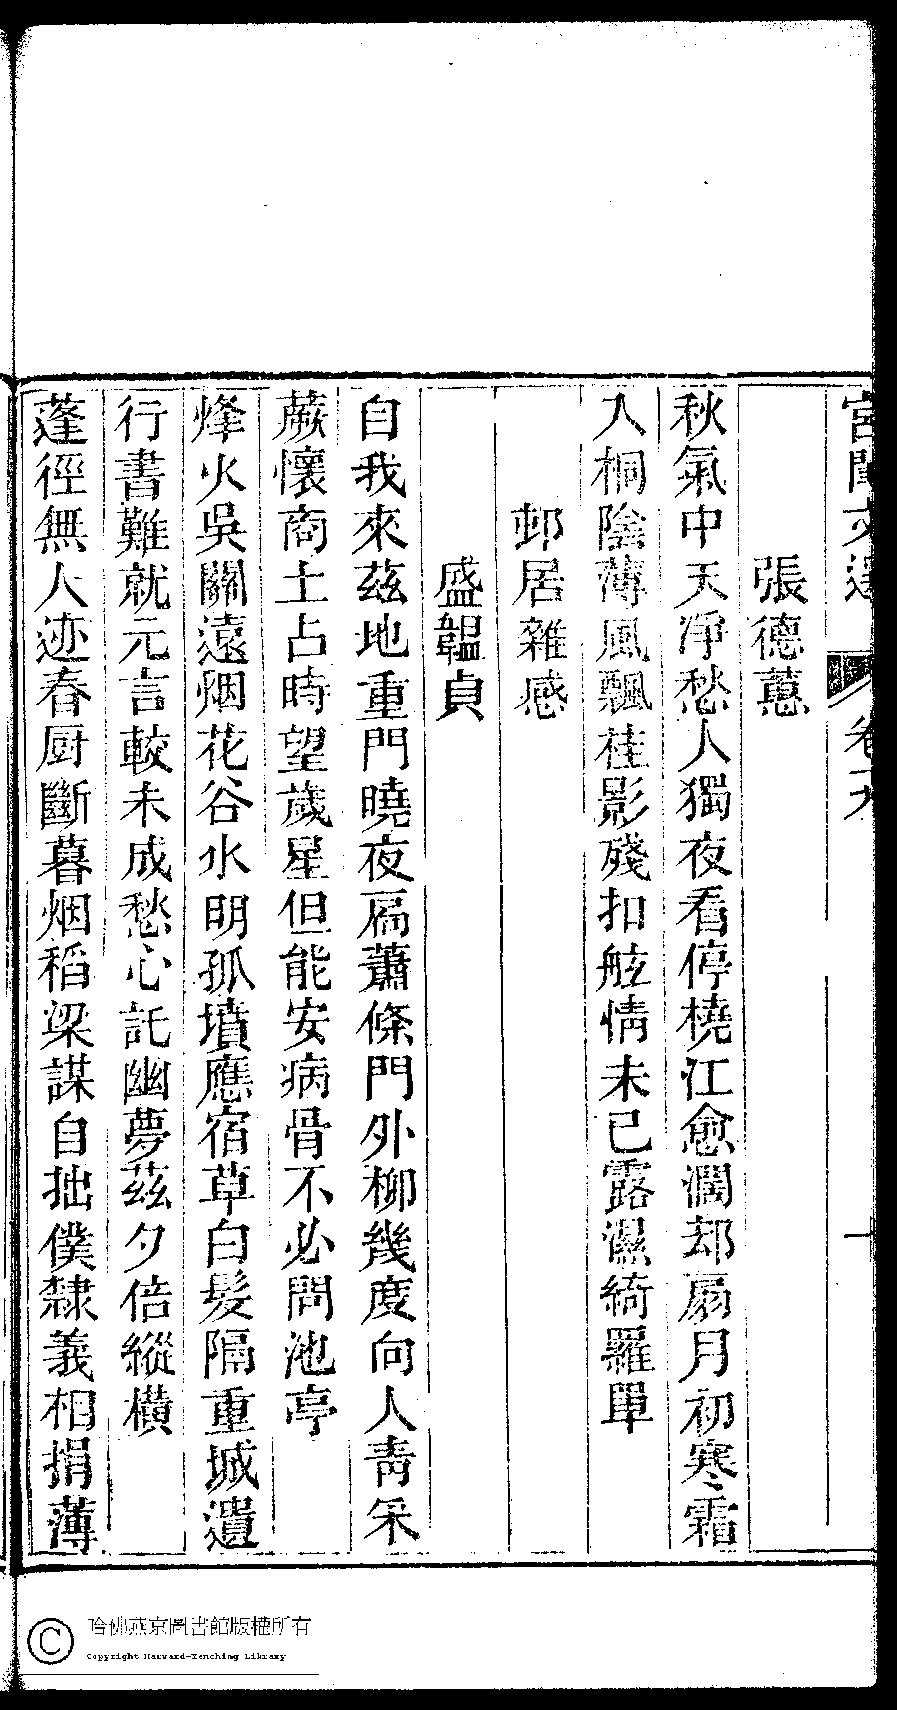 宮閨文選 卷十九 十
張德蕙
秋氣中天淨愁人獨夜看停橈江愈濶却扇月初寒霜
入桐陰薄風飄桂影殘扣舷情未已露濕綺羅單
邨居雜感
盛韞貞
自我來茲地重門曉夜扃蕭條門外柳幾度向人靑采
蕨懷商土占時望歲星但能安病骨不必問池亭
烽火吳關遠烟花谷水明孤墳應宿草白髮隔重城遺
行書難就元言較未成愁心託幽夢茲夕倍縱橫
蓬徑無人迹春厨斷暮烟稻梁謀自拙僕隸義相捐薄
哈佛燕京圖書館版權所有
Copyright Harvard-Yenching Library